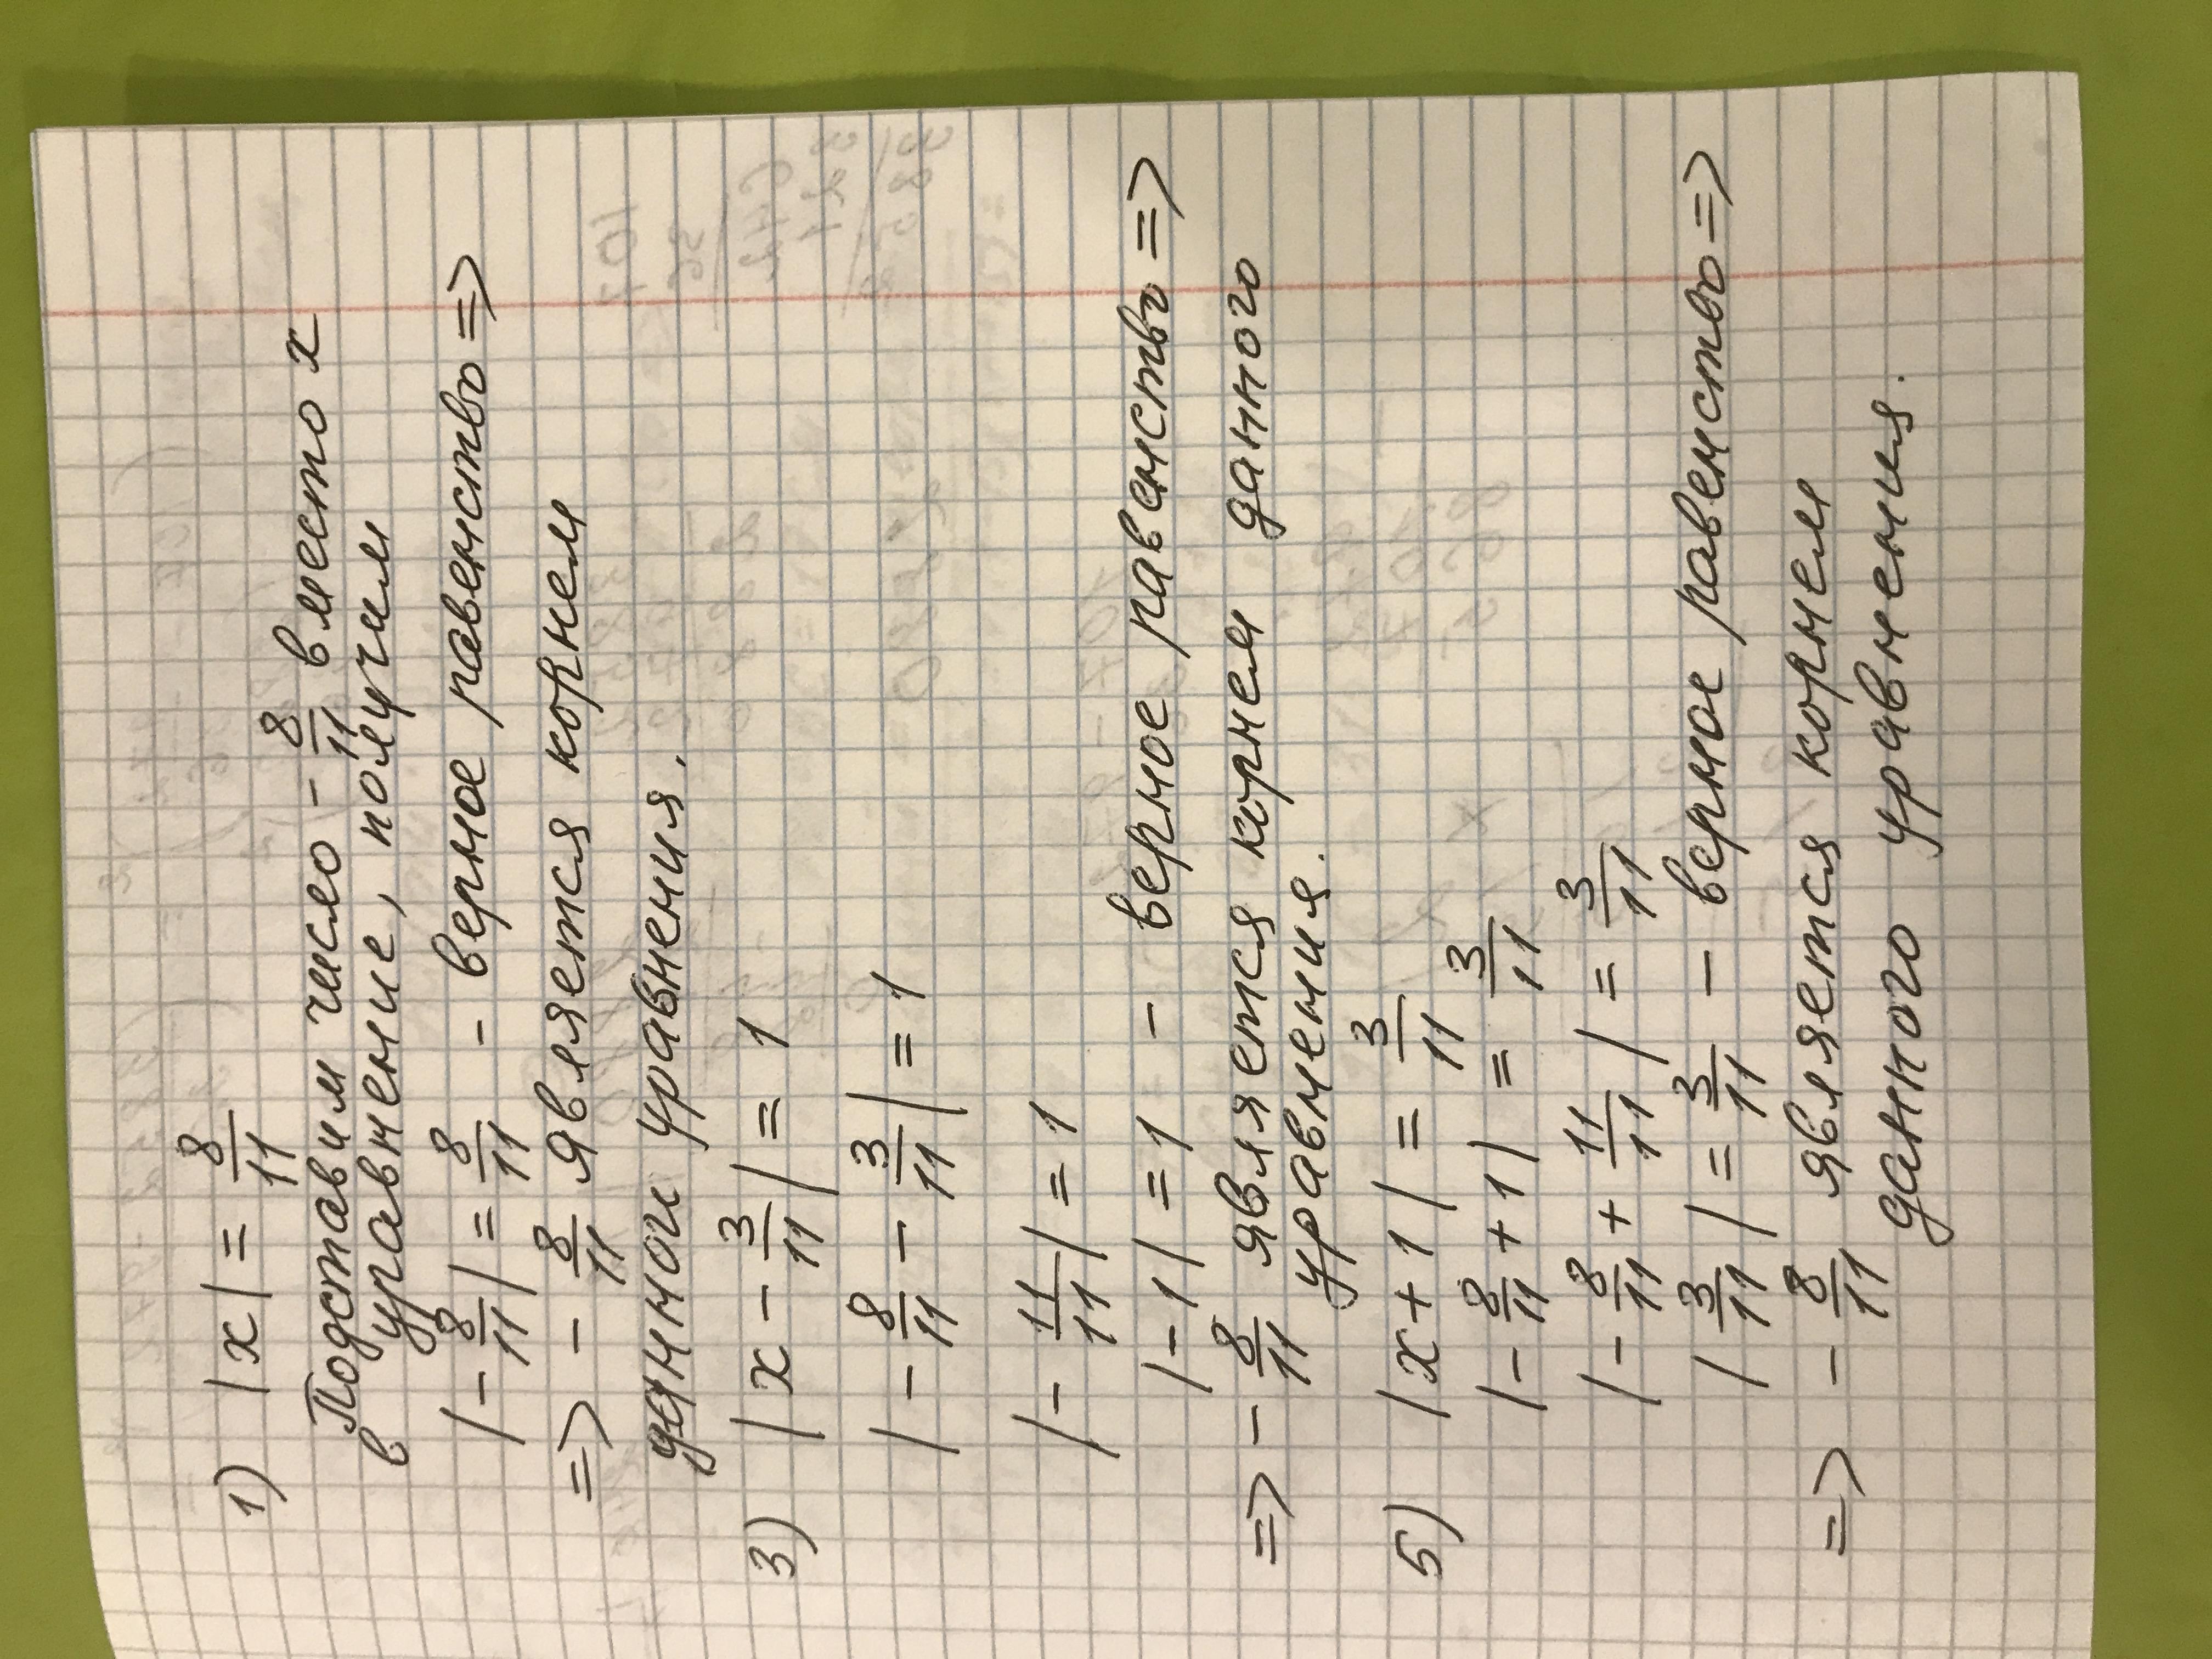 1) |x| = 8/11
Подставим число - 8/11 вместо x
в уравнение, получим
|- 8/11| = 8/11 - верное равенство =>
=> - 8/11 является корнем
данного уравнения.
3) |x - 3/11| = 1
|- 8/11 - 3/11| = 1
|- 11/11| = 1
|-1| = 1 - верное равенство =>
=> - 8/11 является корнем данного
уравнения.
5) |x + 1| = 3/11
|- 8/11 + 1| = 3/11
|- 8/11 + 11/11| = 3/11
|3/11| = 3/11 - верное равенство =>
=> - 8/11 является корнем
данного уравнения.